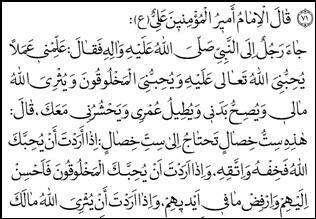 (٧١) قَالَ الْإِمَامُ أَمِيرُ الْمُؤْمِنِينَ عَلِيٌّ (ع):
جَاءَ رَجُلٌ إِلَى النَّبِيِّ صَلَّى اللهُ عَلَيْهِ وَالِهِ فَقَالَ: عَلِّمْنِي عَمَلًا
يُحِبُّنِي اللهُ تَعَالَى عَلَيْهِ وَيُحِبُّنِي الْمَخْلُوقُونَ وَيُثْرِي اللهُ
مَالِي وَيُصِحُّ بَدَنِي وَيُطِيلُ عُمْرِي وَيَحْشُرُنِي مَعَكَ، قَالَ:
هٰذِهِ سِتُّ خِصَالٍ تَحْتَاجُ إِلَى سِتِّ خِصَالٍ: إِذَا أَرَدْتَ أَنْ يُحِبَّكَ
اللهُ فَخِفْهُ وَاتَّقِهِ، وَإِذَا أَرَدْتَ أَنْ يُحِبَّكَ الْمَخْلُوقُونَ فَأَحْسِنْ
إِلَيْهِمْ وَارْفِضْ مَا فِي أَيْدِيهِمْ، وَإِذَا أَرَدْتَ أَنْ يُثْرِيَ اللهُ مَالَكَ